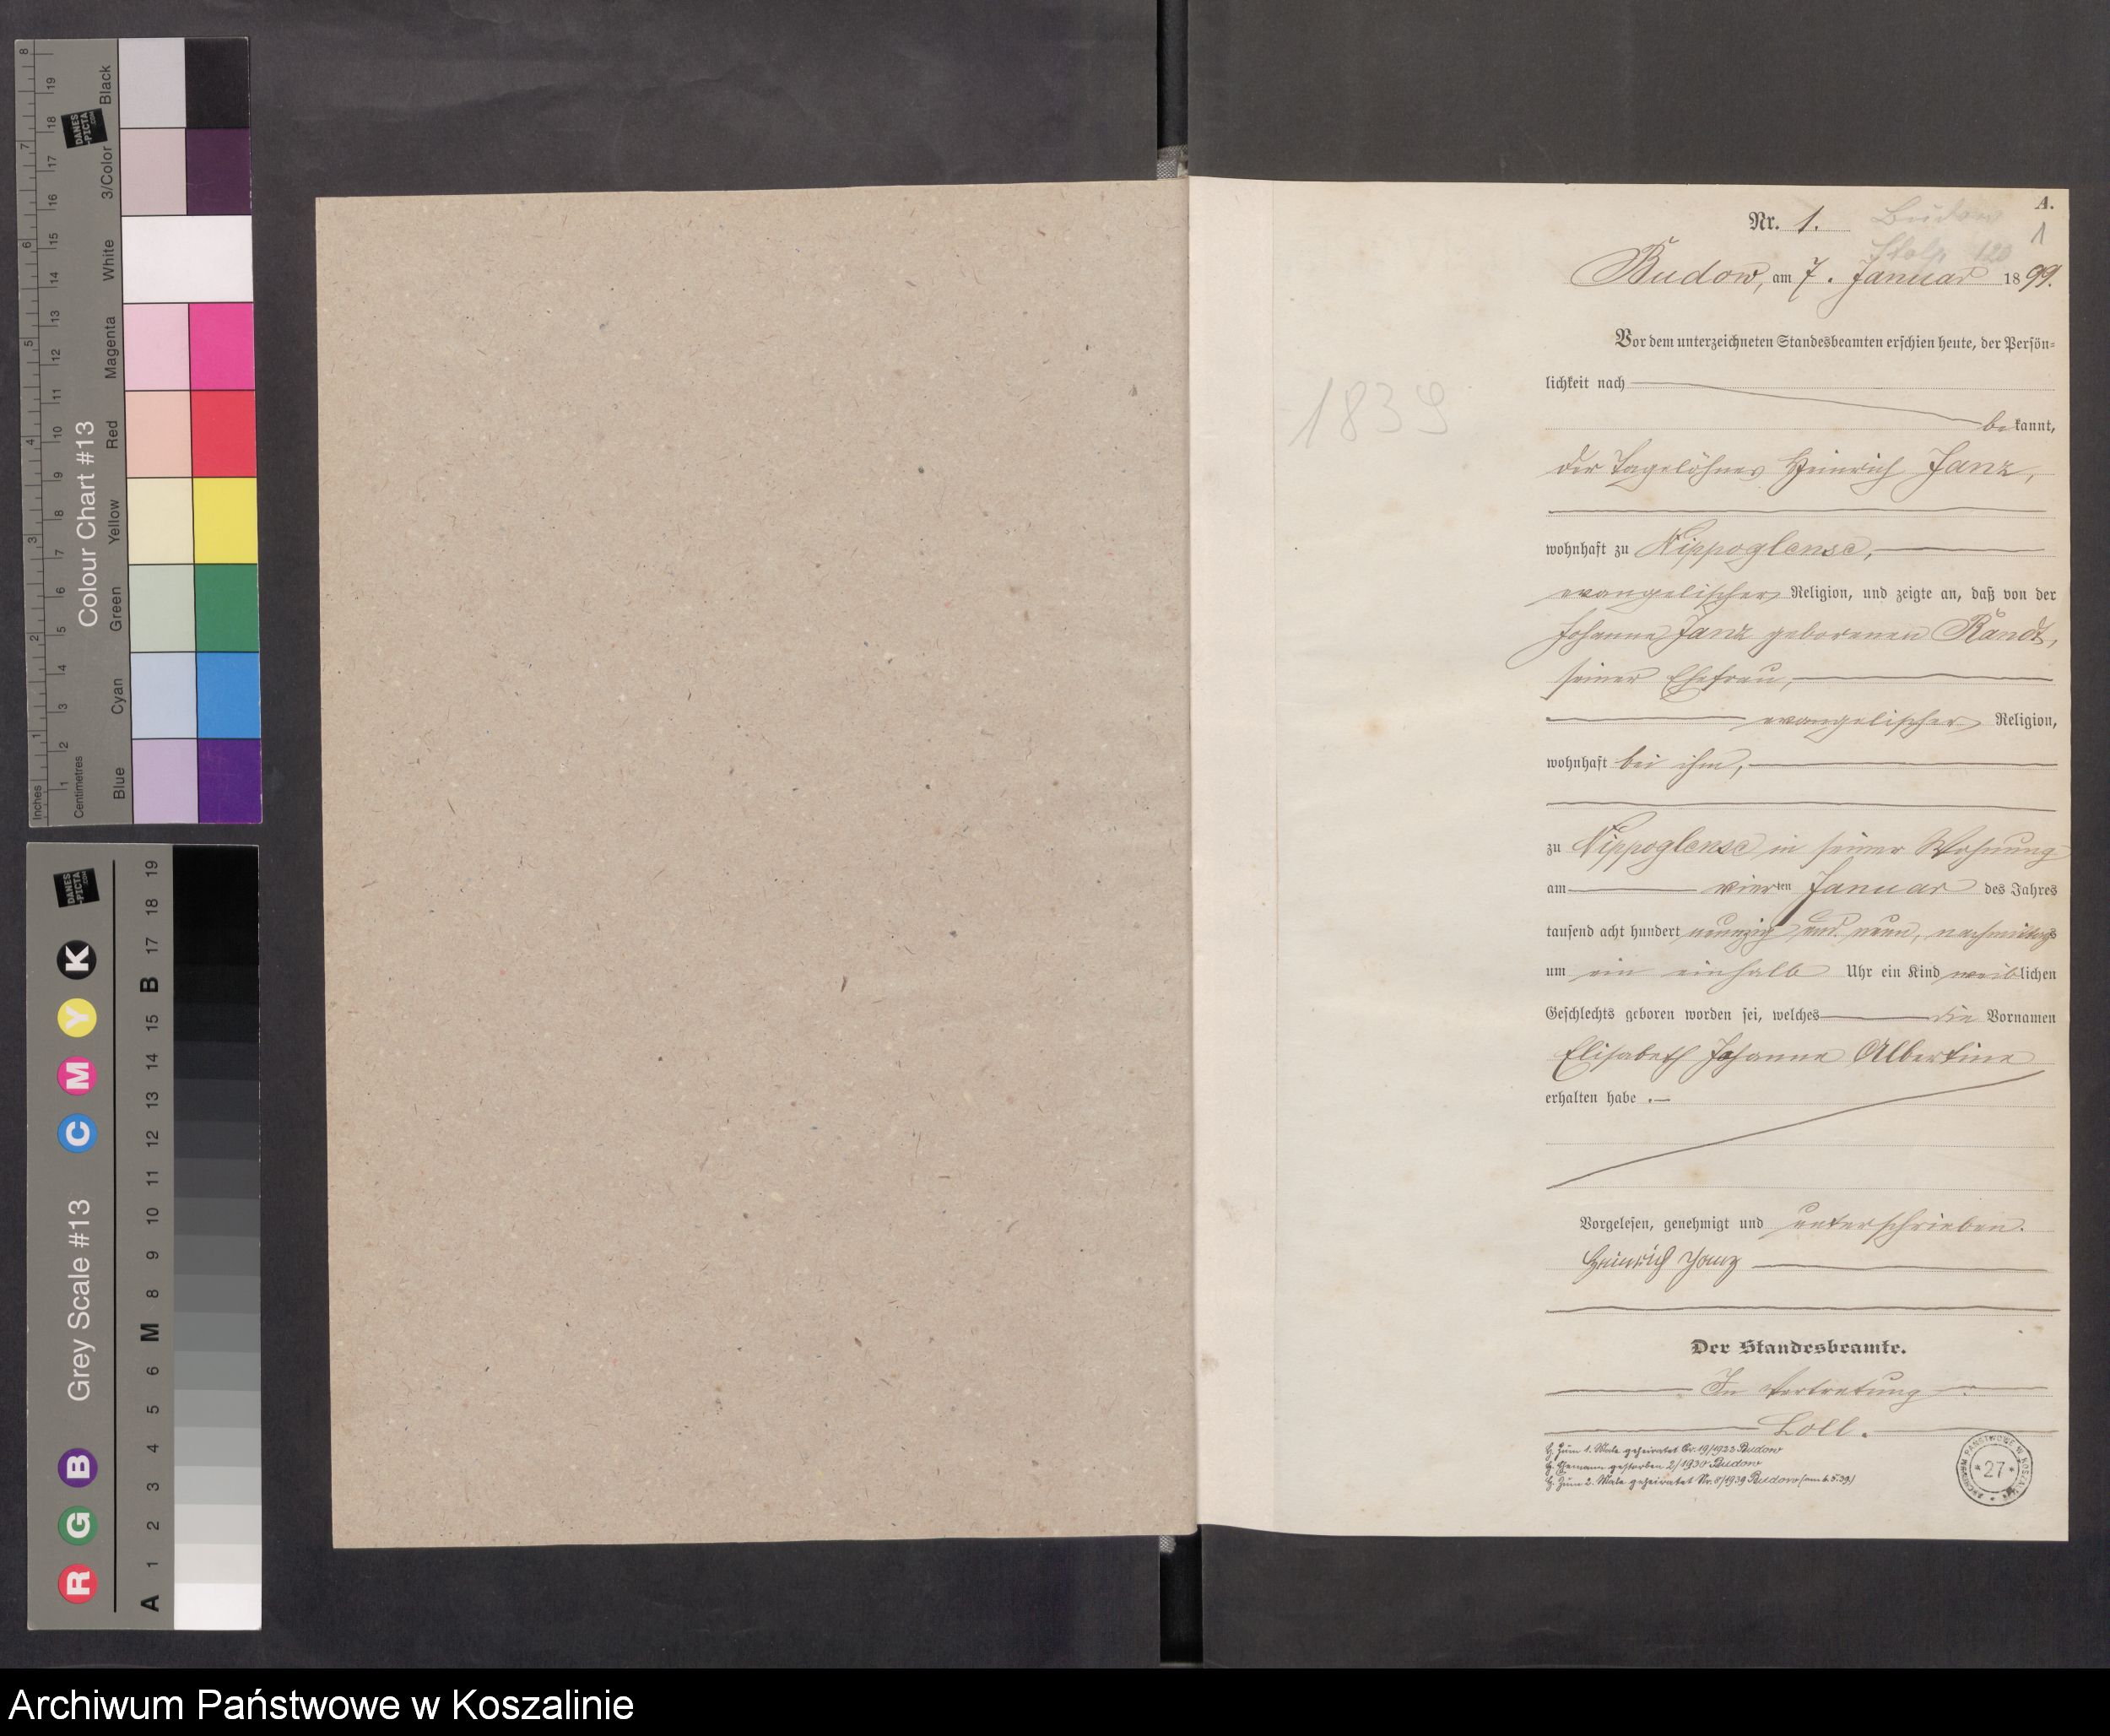 8
7
6
5
4
3
2
1
Inches
19
18
17
16
15
14
13
12
11
10
9
8
7
6
5
4
3
2
1
Centimetres
Colour Chart #13
DANES
-PICTA
.COM
Black
3/Color
White
Magenta
Red
Yellow
Green
Cyan
Blue
Grey Scale #13
DANES
-PICTA
.COM
R G B C M Y K
A 1 2 3 4 5 6 M 8 9 10 11 12 13 14 15 B 17 18 19
A.
Nr. 1. Budow
1
Stolp 120
Budow, am 7. Januar 1899.
Vor dem unterzeichneten Standesbeamten erschien heute, der Persön-
lichkeit nach
1839
bekannt,
der Tagelöhner Heinrich Janz,
wohnhaft zu Nippoglense,
evangelischer Religion, und zeigte an, daß von der
Johanne Janz geborenen Randt,
seiner Ehefrau,
evangelischer Religion,
wohnhaft bei ihm,
zu Nippoglense in seiner Wohnung
am vierten Januar des Jahres
tausend acht hundert neunzig und neun, nachmittags
um ein einhalb Uhr ein Kind weiblichen
Geschlechts geboren worden sei, welches die Vornamen
Elisabeth Johanne Albertine
erhalten habe.—
Vorgelesen, genehmigt und unterschrieben.
Heinrich Janz
Der Standesbeamte.
In Vertretung
Loll.
H. Zum 1. Male geheiratet Nr. 19/1923 Budow
H. Ehemann gestorben 2/1930 Budow
H. Zum 2. Male geheiratet Nr. 8/1939 Budow (am 6.5.39)
ARCHIWUM PAŃSTWOWE W KOSZALINIE
*27*
Archiwum Państwowe w Koszalinie